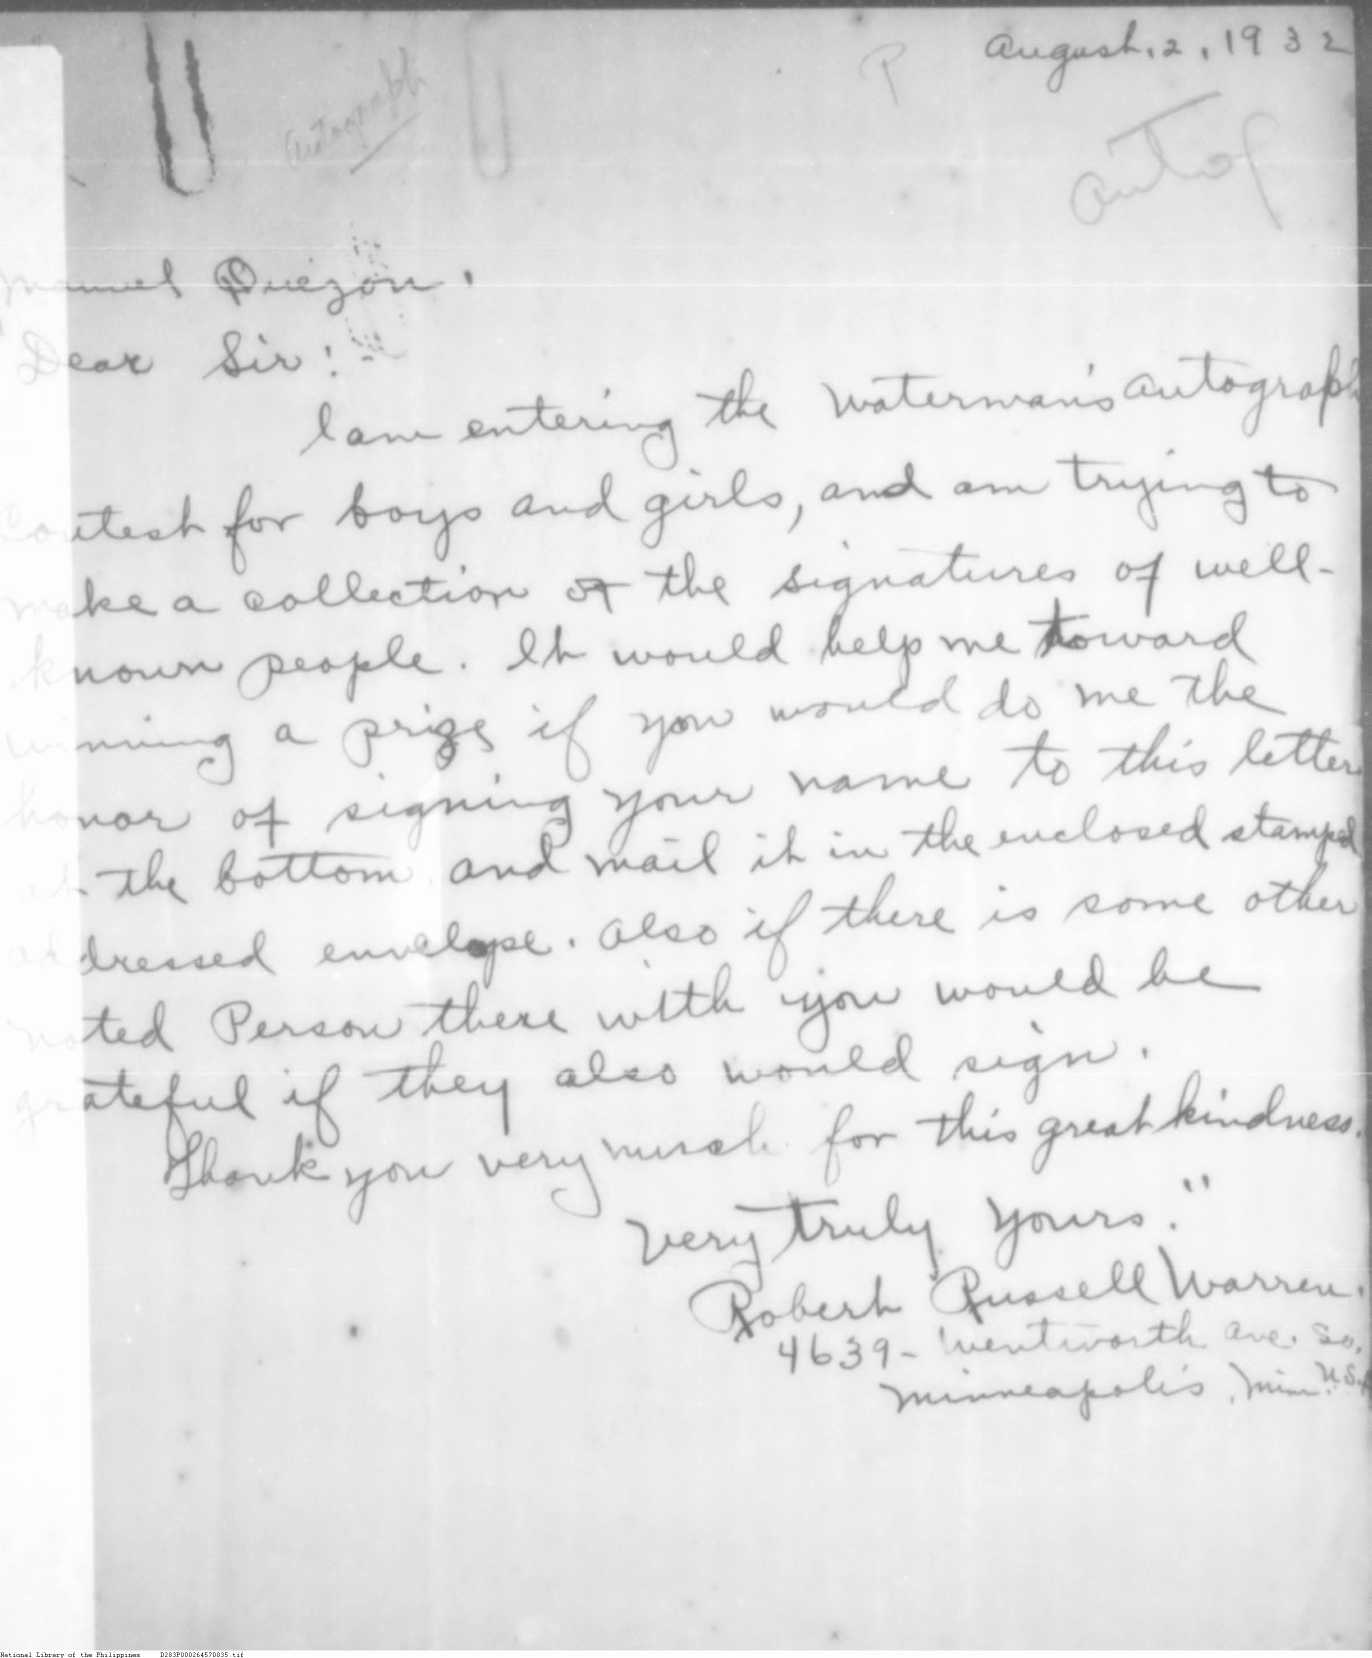 August. 2, 1932
P
Autograph
autog
Manuel Quezon.
Dear Sir:-
I am entering the Waterman's Autograph
Contest for boys and girls, and am trying to
make a collection of the signatures of well-
known people. It would help me toward
winning a prize if you would do me the
honor of signing your name to this letter
at the bottom and mail it in the enclosed stamped
addressed envelope. Also if there is some other
noted Person there with you would be
grateful if they also would sign.
Thank you very much for this great kindness.
Very truly yours."
Robert Russell Warren.
4639- Wentworth Ave. So.
Minneapolis, Minn. U.S.A
National Library of the Philippines D283P000264570835.tif